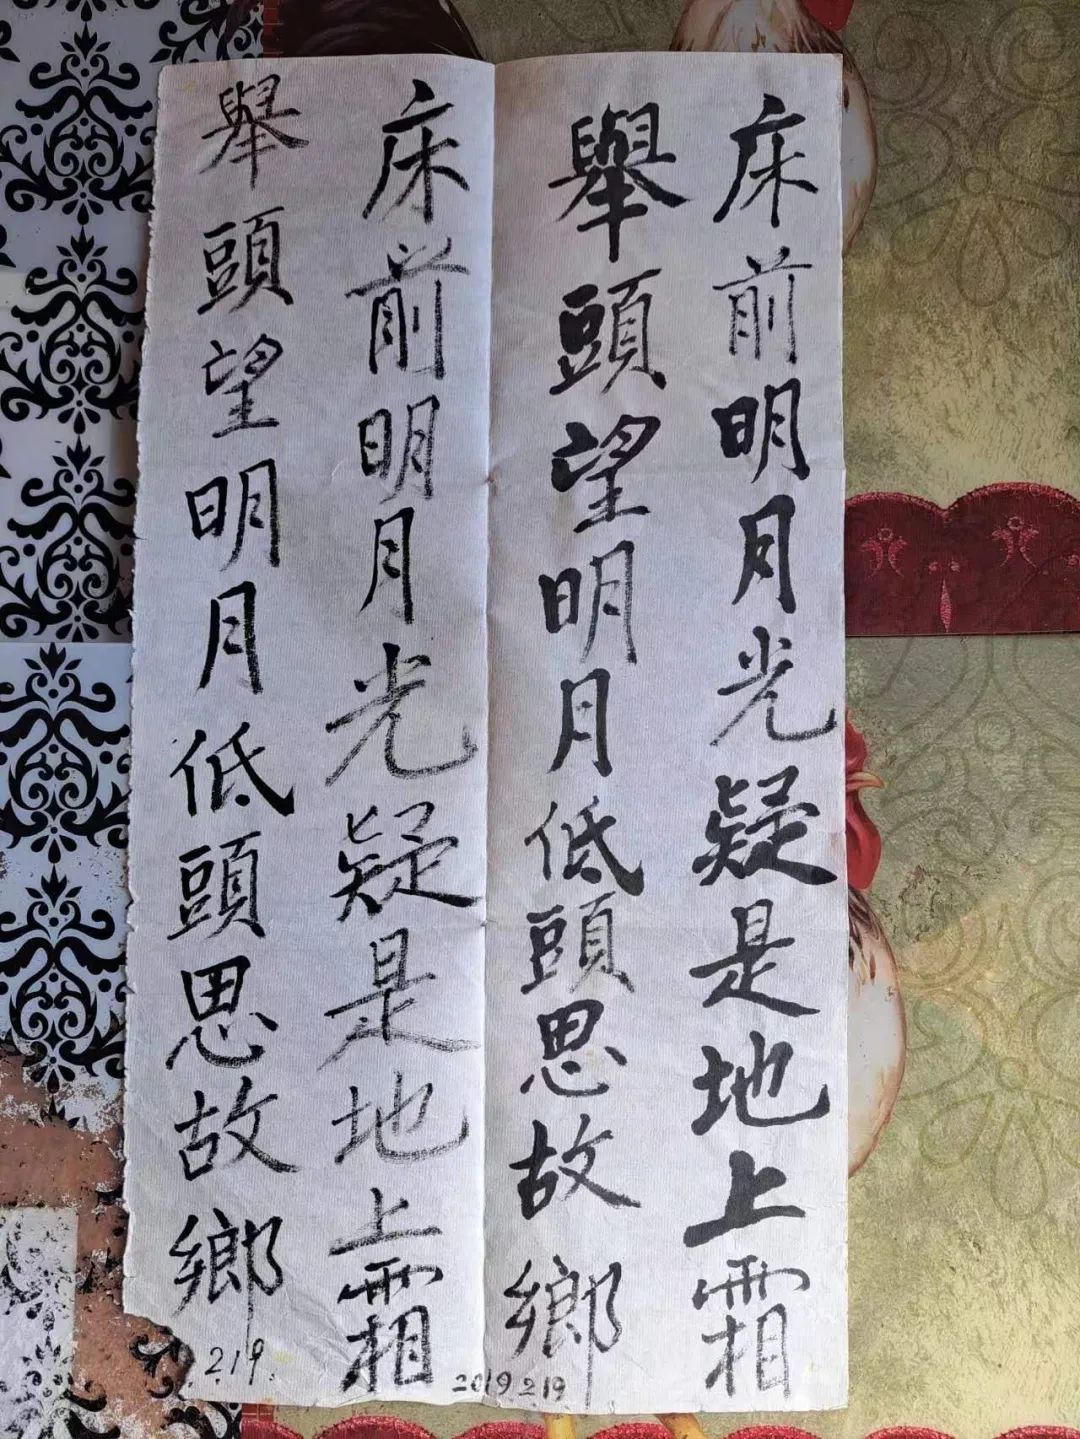 床前明月光疑是地上霜
舉頭望明月低頭思故鄉
2019 2 19
床前明月光疑是地上霜
舉頭望明月低頭思故鄉
2.19.